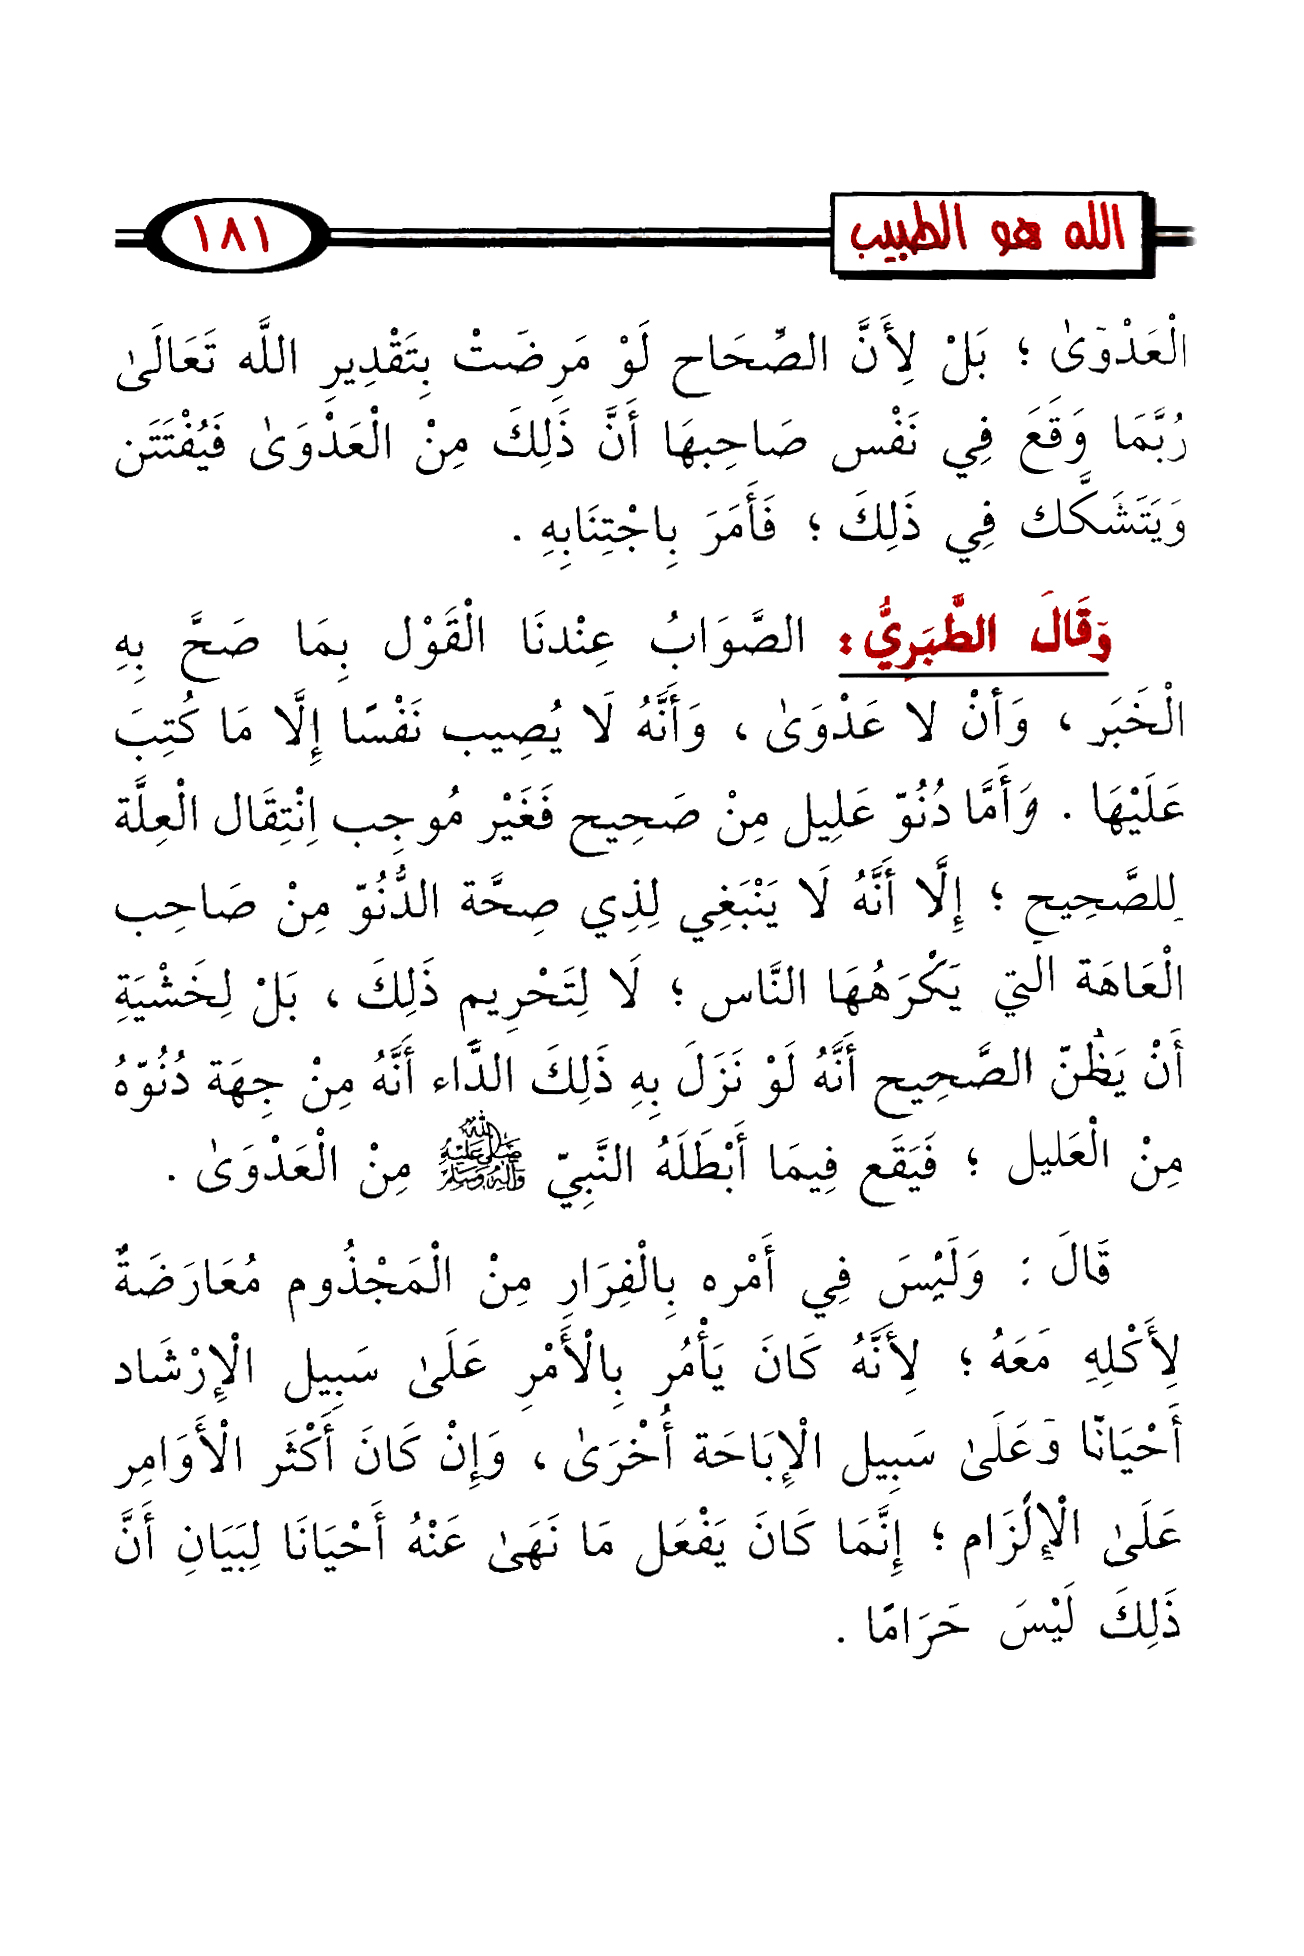 الله هو الطبيب
١٨١
الْعَدْوَىٰ ؛ بَلْ لِأَنَّ الصِّحَاح لَوْ مَرِضَتْ بِتَقْدِيرِ اللَّه تَعَالَىٰ
رُبَّمَا وَقَعَ فِي نَفْس صَاحِبهَا أَنَّ ذَلِكَ مِنْ الْعَدْوَىٰ فَيُفْتَتَن
وَيَتَشَكَّك فِي ذَلِكَ ؛ فَأَمَرَ بِاجْتِنَابِهِ .
وَقَالَ الطَّبَرِيُّ : الصَّوَابُ عِنْدنَا الْقَوْل بِمَا صَحَّ بِهِ
الْخَبَر ، وَأَنْ لا عَدْوَىٰ ، وَأَنَّهُ لَا يُصِيب نَفْسًا إِلَّا مَا كُتِبَ
عَلَيْهَا . وَأَمَّا دُنُوّ عَلِيل مِنْ صَحِيح فَغَيْر مُوجِب اِنْتِقَال الْعِلَّة
لِلصَّحِيح ؛ إِلَّا أَنَّهُ لَا يَنْبَغِي لِذِي صِحَّة الدُّنُوّ مِنْ صَاحِب
الْعَاهَة الَتي يَكْرَهُهَا النَّاس ؛ لَا لِتَحْرِيمِ ذَلِكَ ، بَلْ لِخَشْيَةِ
أَنْ يَظُنّ الصَّحِيح أَنَّهُ لَوْ نَزَلَ بِهِ ذَلِكَ الدَّاء أَنَّهُ مِنْ جِهَة دُنُوّهُ
مِنْ الْعَلِيل ؛ فَيَقَع فِيمَا أَبْطَلَهُ النَّبِيّ ﷺ مِنْ الْعَدْوَىٰ .
قَالَ : وَلَيْسَ فِي أَمْره بِالْفِرَارِ مِنْ الْمَجْذُوم مُعَارَضَةٌ
لِأَكْلِهِ مَعَهُ ؛ لِأَنَّهُ كَانَ يَأْمُر بِالْأَمْرِ عَلَىٰ سَبِيل الْإِرْشَاد
أَحْيَانًا وَعَلَىٰ سَبِيل الْإِبَاحَة أُخْرَىٰ ، وَإِنْ كَانَ أَكْثَر الْأَوَامِر
عَلَىٰ الْإِلْزَام ؛ إِنَّمَا كَانَ يَفْعَل مَا نَهَىٰ عَنْهُ أَحْيَانَا لِبَيَانِ أَنَّ
ذَلِكَ لَيْسَ حَرَامًا .